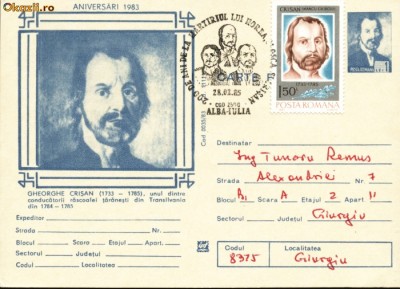 Okazii.ro
ANIVERSĂRI 1983
GHEORGHE CRIŞAN (1733 – 1785), unul dintre
conducătorii răscoalei ţărăneşti din Transilvania
din 1784 - 1785
Expeditor
Strada Nr.
Blocul Scara Etajul Apart.
Sectorul Judeţul
Codul Localitatea
200 DE ANI DE LA MARTIRIUL LUI HOREA, CLOŞCA ŞI CRIŞAN
28.02.85
OOO 2500
ALBA-IULIA
CRIŞAN
1733-1785
1,50
POSTA ROMANA
Cod 0035/83
Destinatar
Ing Tunaru Remus
Strada Alexandriei Nr. 7
Blocul B1 Scara A Etajul 2 Apart. 11
Sectorul Judeţul Giurgiu
Codul Localitatea
8375 Giurgiu